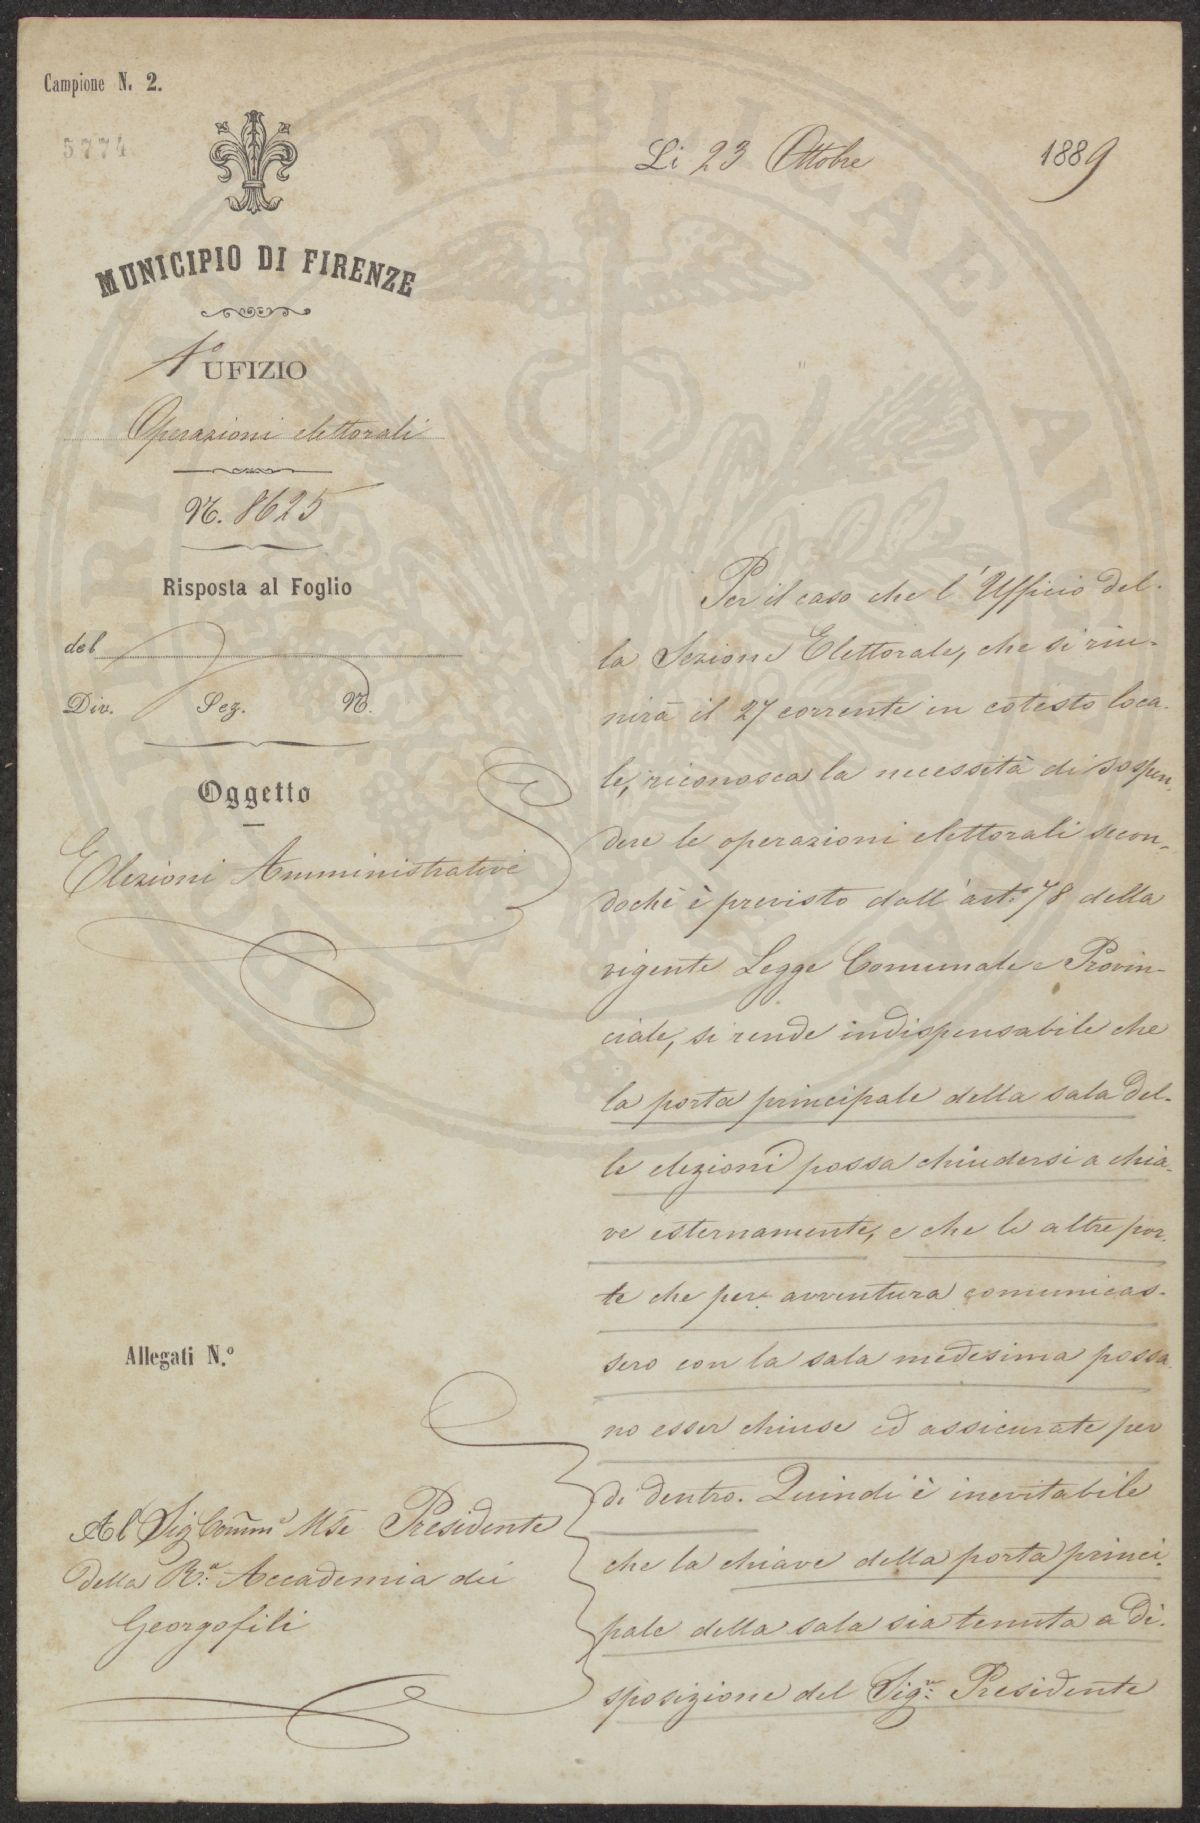 Campione N. 2.
5774
MUNICIPIO DI FIRENZE
1° UFIZIO
Operazioni elettorali
N. 8625
Risposta al Foglio
del
Div. Sez. N.
Oggetto
Elezioni Amministrative
Allegati N.º
Al Sig Comm.e Mse Presidente
della R.a Accademia dei
Georgofili
Li 23 Ottobre 1889
Per il caso che l'Ufficio del-
la Sezione Elettorale, che si riu-
nirà il 27 corrente in cotesto loca-
le, riconosca la necessità di sospen-
dere le operazioni elettorali secon-
dochè è previsto dall'art.º 78 della
vigente Legge Comunale e Provin-
ciale, si rende indispensabile che
la porta principale della sala del-
le elezioni possa chiudersi a chia-
ve esternamente, e che le altre por-
te che per avventura comunicas-
sero con la sala medesima possa-
no esser chiuse ed assicurate per
di dentro. Quindi è inevitabile
che la chiave della porta princi-
pale della sala sia tenuta a di-
sposizione del Sigr: Presidente